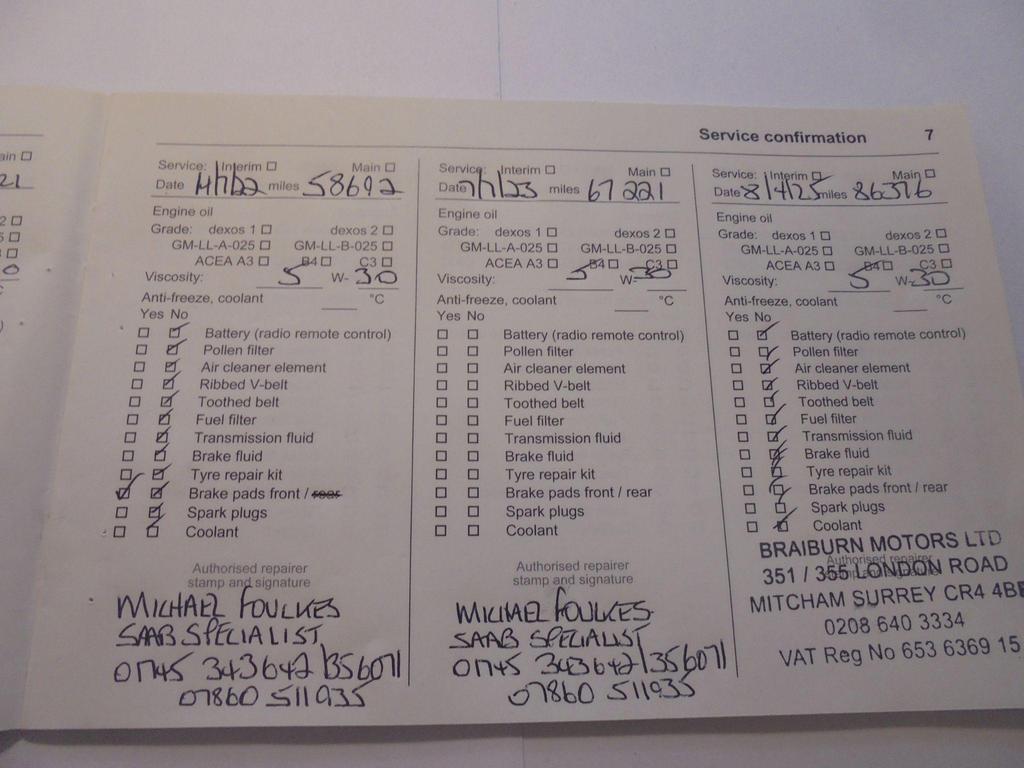 ain ☐
21
2 ☐
5 ☐
3 ☐
Service confirmation 7
Service: Interim ☐ Main ☐
Date miles 58692
Engine oil
Grade: dexos 1 ☐ dexos 2 ☐
GM-LL-A-025 ☐ GM-LL-B-025 ☐
ACEA A3 ☐ B4 ☐ C3 ☐
Viscosity: 5 W- 30
Anti-freeze, coolant °C
Yes No
☐ ☑ Battery (radio remote control)
☐ ☑ Pollen filter
☐ ☑ Air cleaner element
☐ ☑ Ribbed V-belt
☐ ☑ Toothed belt
☐ ☑ Fuel filter
☐ ☑ Transmission fluid
☐ ☑ Brake fluid
☐ ☑ Tyre repair kit
☑ ☑ Brake pads front / rear
☐ ☑ Spark plugs
☐ ☑ Coolant
Authorised repairer
stamp and signature
MICHAEL FOULKES
SAAB SPECIALIST
01745 343642/356071
07860 511935
Service: Interim ☐ Main ☐
Date 7/7/23 miles 67221
Engine oil
Grade: dexos 1 ☐ dexos 2 ☐
GM-LL-A-025 ☐ GM-LL-B-025 ☐
ACEA A3 ☐ B4 ☐ C3 ☐
Viscosity: 5 W- 30
Anti-freeze, coolant °C
Yes No
☐ ☐ Battery (radio remote control)
☐ ☐ Pollen filter
☐ ☐ Air cleaner element
☐ ☐ Ribbed V-belt
☐ ☐ Toothed belt
☐ ☐ Fuel filter
☐ ☐ Transmission fluid
☐ ☐ Brake fluid
☐ ☐ Tyre repair kit
☐ ☐ Brake pads front / rear
☐ ☐ Spark plugs
☐ ☐ Coolant
Authorised repairer
stamp and signature
MICHAEL FOULKES
SAAB SPECIALIST
01745 343642/356071
07860 511935
Service: Interim ☑ Main ☐
Date 8/4/25 miles 86376
Engine oil
Grade: dexos 1 ☐ dexos 2 ☐
GM-LL-A-025 ☐ GM-LL-B-025 ☐
ACEA A3 ☐ B4 ☐ C3 ☐
Viscosity: 5 W- 30
Anti-freeze, coolant °C
Yes No
☐ ☑ Battery (radio remote control)
☐ ☑ Pollen filter
☐ ☑ Air cleaner element
☐ ☑ Ribbed V-belt
☐ ☑ Toothed belt
☐ ☑ Fuel filter
☐ ☑ Transmission fluid
☐ ☑ Brake fluid
☐ ☑ Tyre repair kit
☐ ☑ Brake pads front / rear
☐ ☐ Spark plugs
☐ ☑ Coolant
Authorised repairer
stamp and signature
BRAIBURN MOTORS LTD
351 / 355 LONDON ROAD
MITCHAM SURREY CR4 4BE
0208 640 3334
VAT Reg No 653 6369 15